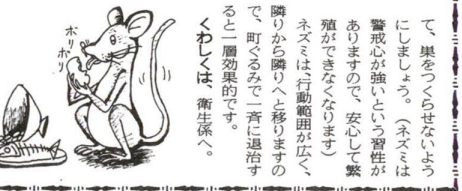 て、巣をつくらせないよう
にしましょう。(ネズミは
警戒心が強いという習性が
ありますので、安心して繁
殖ができなくなります)
ネズミは、行動範囲が広く、
隣りから隣りへと移りますの
で、町ぐるみで一斉に退治す
ると一層効果的です。
くわしくは、衛生係へ。
ポリ
ポリ